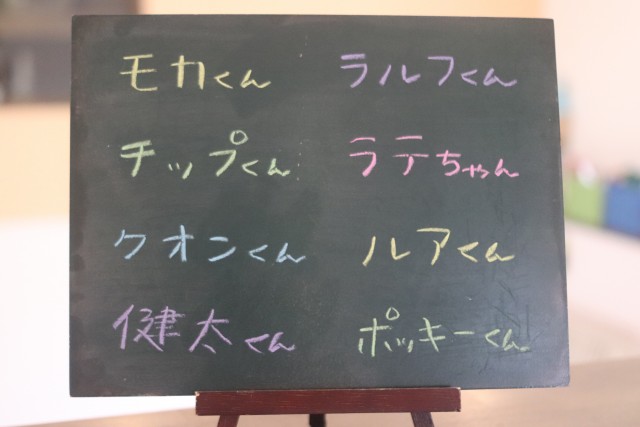 モカくん ラルフくん
チップくん ラテちゃん
クオンくん ルアくん
健太くん ポッキーくん